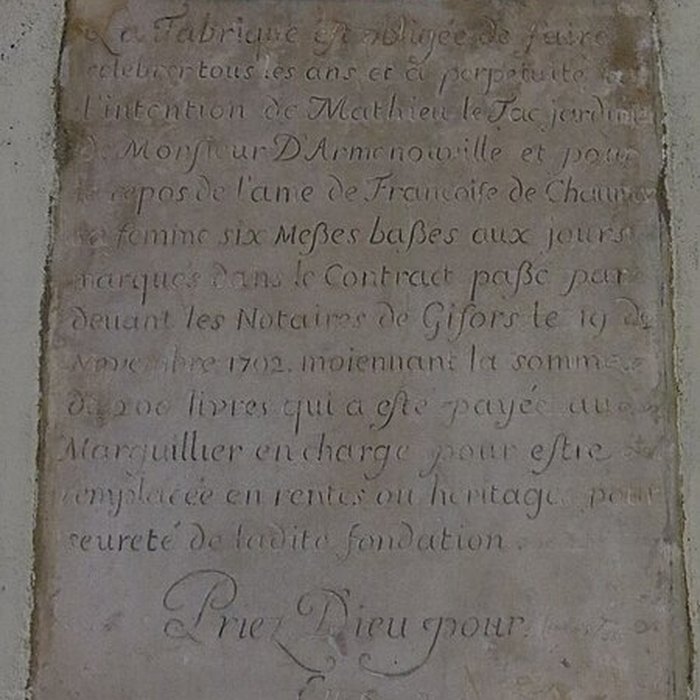 La Fabrique est obligée de faire
celebrer tous les ans et à perpetuité a
l'intention de Mathieu le Tac jardinie
de Monsieur D'Armenonville et pour
le repos de l'ame de Francoise de
sa femme six Meßes baßes aux jours
marqués dans le Contract paßé par
devant les Notaires de Gisors le 19 de
Novembre 1702. moiennant la somme
de 200 livres qui a esté payée au
Marguillier en charge pour estre
remplacée en rentes ou heritages pour
seureté de ladite fondation
Priez Dieu pour